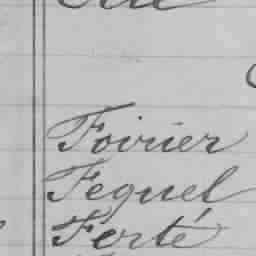 Foirier
Fequel
Ferté